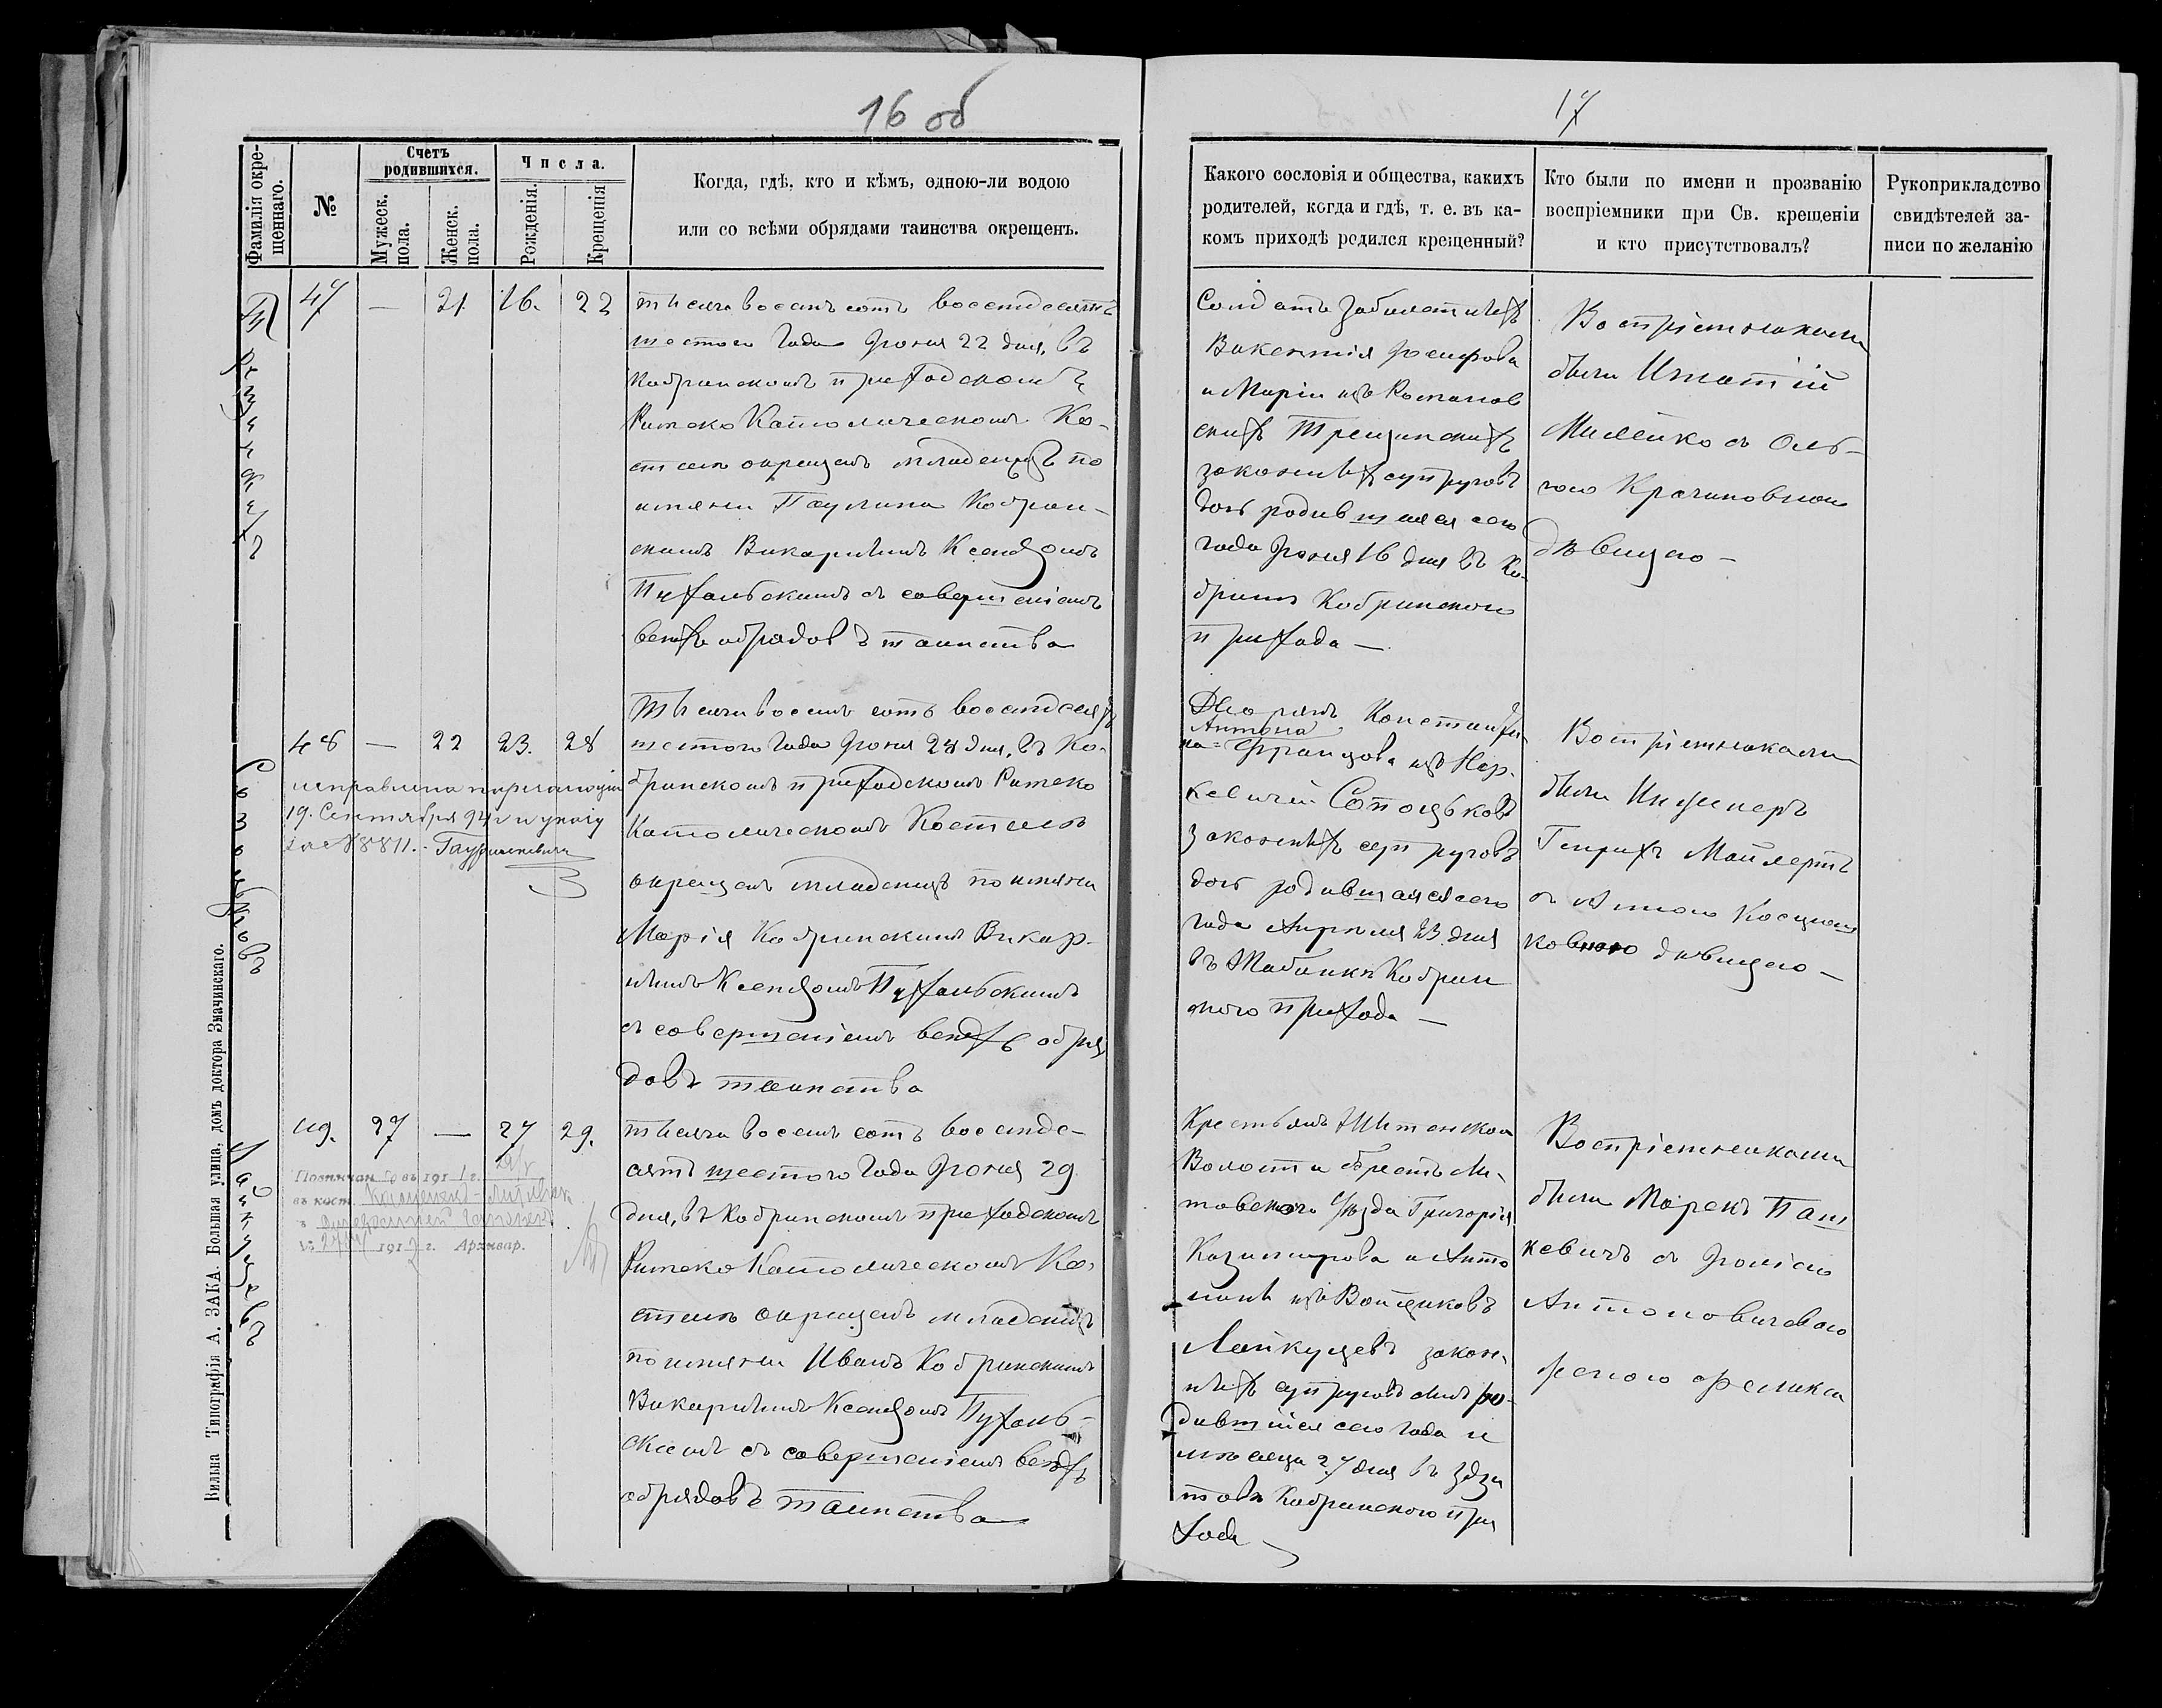 16 об
Фамилія окре-
щеннаго.
№
Счетъ
родившихся.
Мужеск.
пола.
Женск.
пола.
Числа.
Рожденія.
Крещенія
Когда, гдѣ, кто и кѣмъ, одною-ли водою
или со всѣми обрядами таинства окрещенъ.
47 — 21. 16. 22
тысяча восемь сотъ восемдесятъ
шестого Года Іюня 22 дня, въ
Кобринскомъ приходскомъ
Римско Католическомъ Ко-
стелѣ окрещенъ младенецъ по
имяни Паулина Кобрин-
скимъ Викарнымъ Ксендзомъ
Пухальскимъ съ совершеніемъ
всехъ обрядовъ таинства
Сотоцьковъ
48 — 22 23. 28
исправлена по резолюціи
19. Сентября и указу
за № 8811.
Тысяча восемь сотъ восемдесятъ
шестого Года Іюня 28 дня, въ Ко-
бринскомъ приходскомъ Римско
Католическомъ Костелѣ
окрещенъ младенецъ по имяни
Марія Кобринскимъ Викар-
нымъ Ксендзомъ Пухальскимъ
съ совершеніемъ всехъ обря
довъ таинства
Лайкуцевъ
49. 27 — 27 29.
въ 191 г.
въ кост.
№ 191 г. Архивар.
тысяча восемь сотъ восемде-
сятъ шестого Года Іюня 29
дня, въ Кобринскомъ приходскомъ
Римско Католическомъ Ко-
стелѣ окрещенъ младенецъ
по имяни Иванъ Кобринскимъ
Викарнымъ Ксендзомъ Пухаль-
скимъ съ совершеніемъ всехъ
обрядовъ таинства
Вильна Типографія А. ЗАКА. Большая улица, домъ доктора Значинскаго.
17
Какого сословія и общества, какихъ
родителей, когда и гдѣ, т. е. въ ка-
комъ приходѣ родился крещенный?
Кто были по имени и прозванію
воспріемники при Св. крещеніи
и кто присутствовалъ?
Рукоприкладство
свидѣтелей за-
писи по желанію
Солдатъ
Викентія Іосифова
и Маріи изъ Романов
скихъ
законныхъ супруговъ
дочь родившаяся сего
года Іюня 16 дня въ Ко-
бринѣ Кобринскаго
прихода —
Воспріемниками
были Игнатій
Милейко съ Оль-
гою
дѣвицею —
Дворянъ Константи
Антона
на= Францова изъ Нар-
кевичей Сотоцьковъ
законныхъ супруговъ
дочь родившаяся сего
года Апрѣля 23 дня
въ Жабинкѣ Кобрин
скаго прихода —
Воспріемниками
были Инженеръ
Генрихъ Майлертъ
съ Анною Косцюш
ковною дѣвицею —
Крестьянъ
Волости Брестъ Ли-
товскаго Уѣзда Григорія
Казимирова и Анто
нины изъ Войциковъ
Лайкуцевъ закон-
ныхъ супруговъ сынъ ро-
дившійся сего года и
мѣсяца 27 дня въ Здзи
товѣ Кобринскаго при
хода
Воспріемниками
были Марекъ Паш
кевичъ съ Юліею
Антоновичевою
женою Феликса